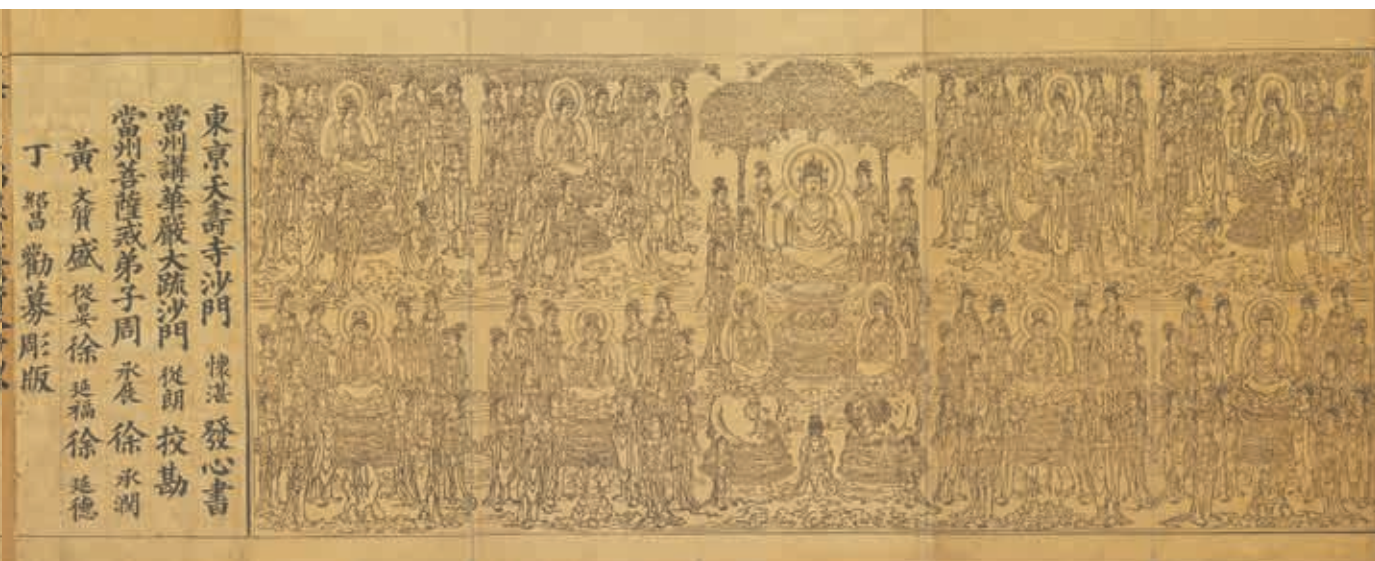 東京天壽寺沙門 懷湛 發心書
當州講華嚴大疏沙門 從朗 挍勘
當州菩薩戒弟子周 承展 徐 承潤
黃 文質 盛 從晏 徐 延福 徐 延德
丁 昌 勸募彫版